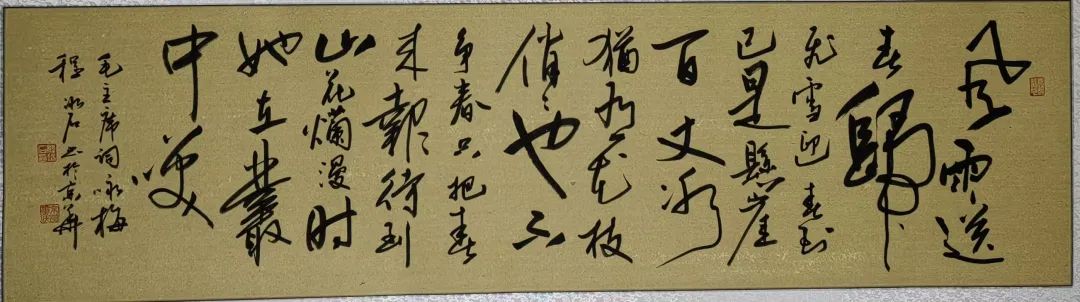 风雨送
春歸
飞雪迎春到
已是懸崖
百丈冰
猶有花枝
俏々也不
争春只把春
来報待到
山花爛漫时
她在叢
中笑
毛主席词咏梅
程冰石书於京華